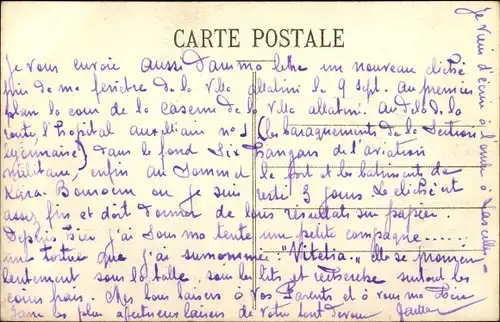 CARTE POSTALE
Je vous envoie aussi dans ma lettre un nouveau cliché
pris de ma fenêtre de la Villa allatini le 9 sept. au premier
plan la cour de la caserne de la villa allatini. au delà de la
route, l'hopital auxiliaire no 1 (les baraquements de la Section
lyonnaise) dans le fond Six Hangars de l'aviation
militaire, enfin au Sommet le fort et les batiments de
Kara-Bouroun ou je suis resté 3 jours. Le cliché est
assez fin et doit donner de bons résultats sur papier.
Depuis hier j'ai sous ma tente une petite compagne......
une tortue que j'ai surnommée: "Vitelia" elle se promène
lentement sous la table, sous les lits et recherche surtout les
bons baisers à vos Parents et à vous ma
les plus affectueux baisers de votre tout dévoué
Je viens d'écrire à l'